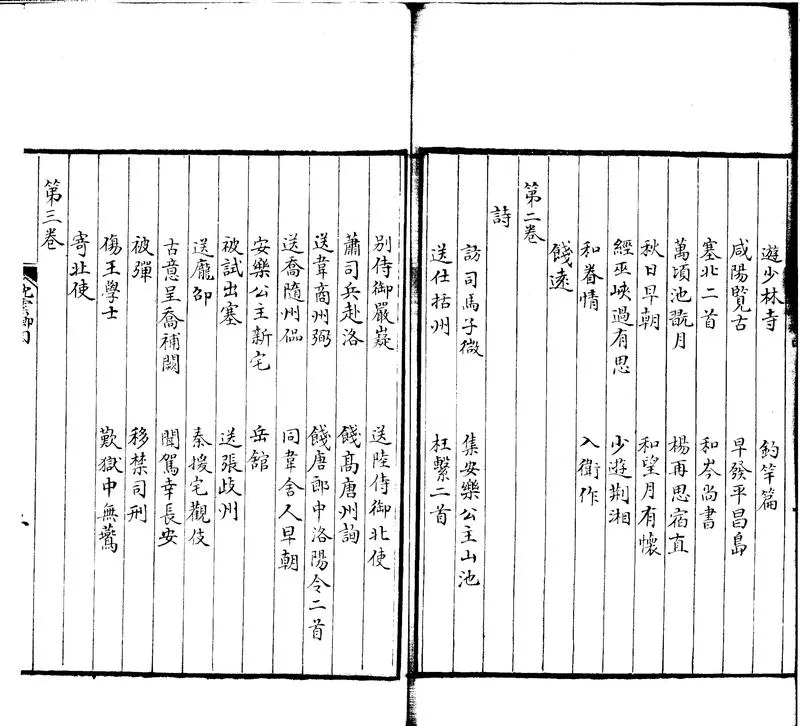 遊少林寺 釣竿篇
咸陽覽古 早發平昌島
塞北二首 和岑尚書
萬項池翫月 楊再思宿直
秋日早朝 和望月有懷
經巫峽過有思 少遊荆湘
和眷情 入衛作
餞遠
第二卷
詩
訪司馬子微 集安樂公主山池
送仕括州 枉繫二首
別侍御嚴嶷 送陸侍御北使
蕭司兵赴洛 餞高唐州詢
送韋商州弼 餞唐郎中洛陽令二首
送喬隨州偘 同韋舍人早朝
安樂公主新宅 岳舘
被試出塞 送張歧州
送龐邵 秦援宅觀伎
古意呈喬補闕 聞駕幸長安
被彈 移禁司刑
傷王學士 歎獄中無鷰
寄北使
第三卷